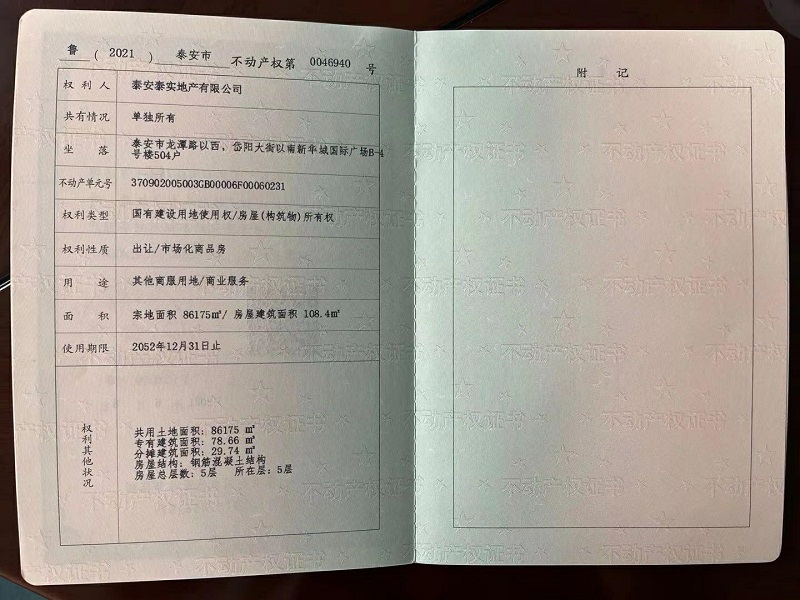 鲁 ( 2021 ) 泰安市 不动产权第 0046940 号
权利人 泰安泰实地产有限公司
共有情况 单独所有
坐落 泰安市龙潭路以西、岱阳大街以南新华城国际广场B-4
号楼504户
不动产单元号 370902005003GB00006F00060231
权利类型 国有建设用地使用权/房屋(构筑物)所有权
权利性质 出让/市场化商品房
用途 其他商服用地/商业服务
面积 宗地面积 86175㎡/ 房屋建筑面积 108.4㎡
使用期限 2052年12月31日止
权利其他状况
共用土地面积: 86175 ㎡
专有建筑面积: 78.66 ㎡
分摊建筑面积: 29.74 ㎡
房屋结构: 钢筋混凝土结构
房屋总层数: 5层 所在层: 5层
附记
不动产权证书